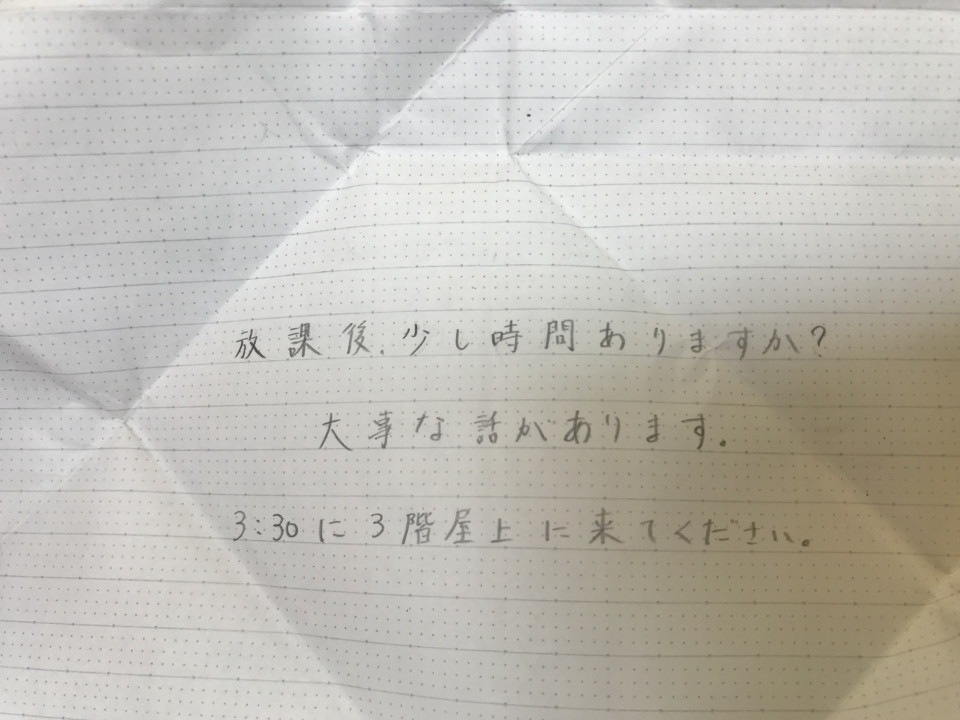 放課後、少し時間ありますか?
大事な話があります。
3:30に3階屋上に来てください。